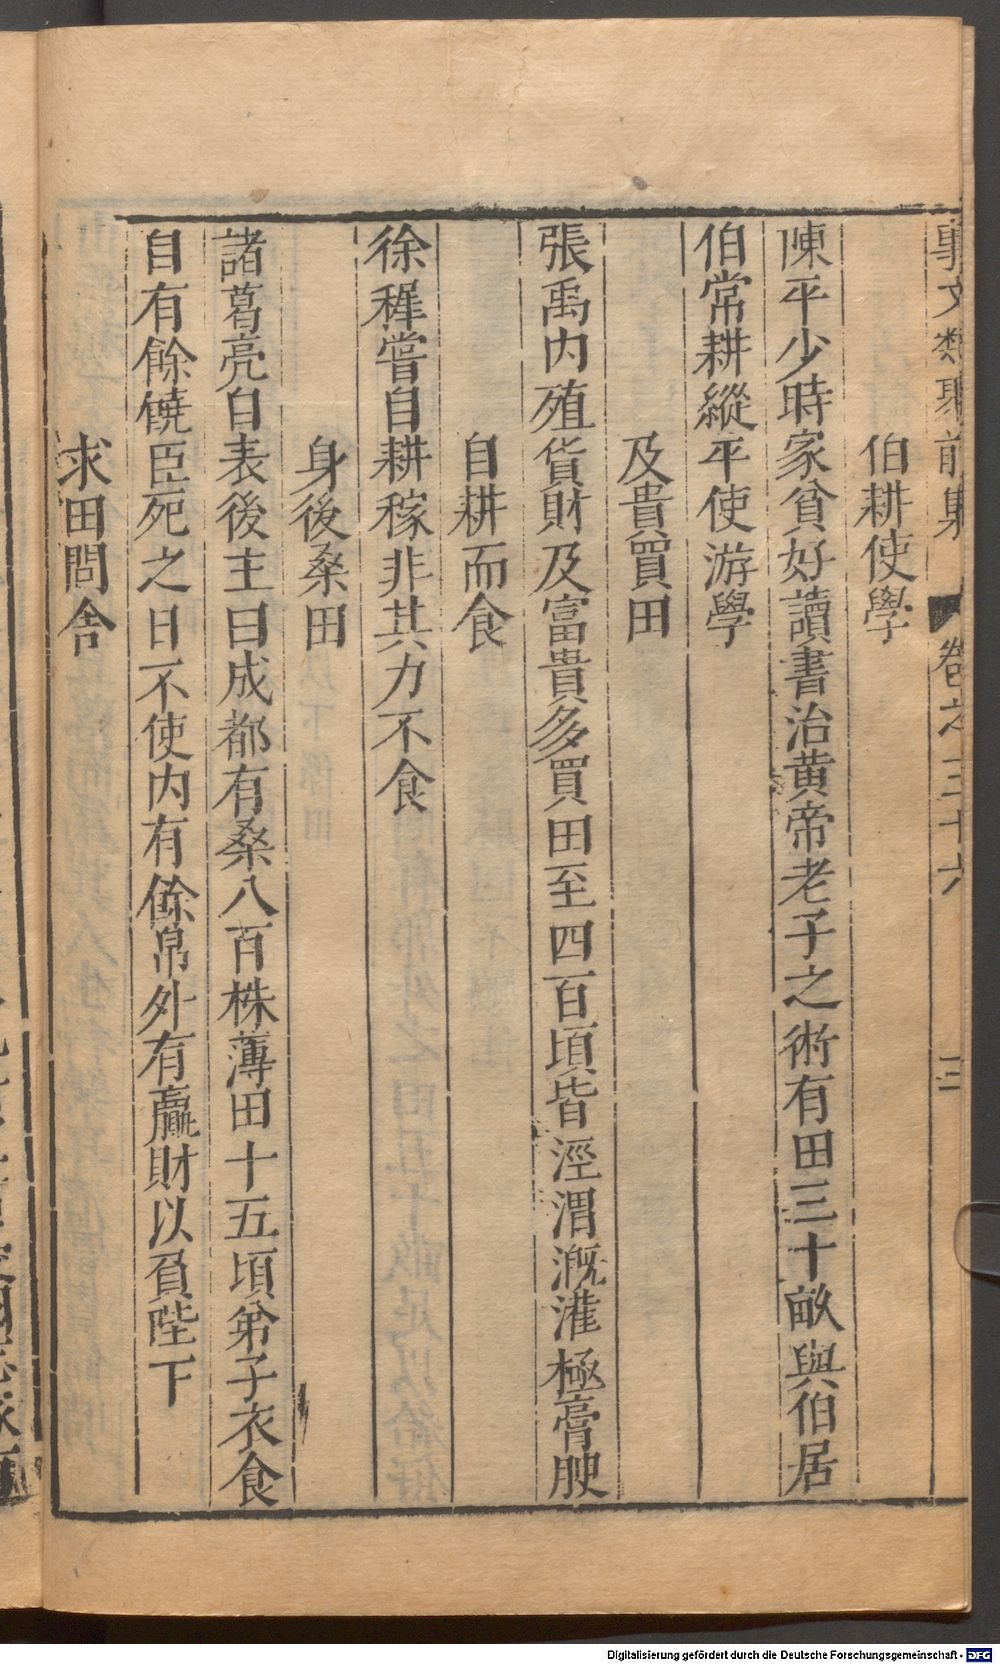 事文類聚前集 卷之三十六 三
伯耕使學
陳平少時家貧好讀書治黃帝老子之術有田三十畝與伯居
伯常耕縱平使游學
及貴買田
張禹內殖貨財及富貴多買田至四百頃皆涇渭溉灌極膏腴
自耕而食
徐穉嘗自耕稼非其力不食
身後桑田
諸葛亮自表後主曰成都有桑八百株薄田十五頃弟子衣食
自有餘饒臣死之日不使內有餘帛外有贏財以負陛下
求田問舍
Digitalisierung gefördert durch die Deutsche Forschungsgemeinschaft - DFG